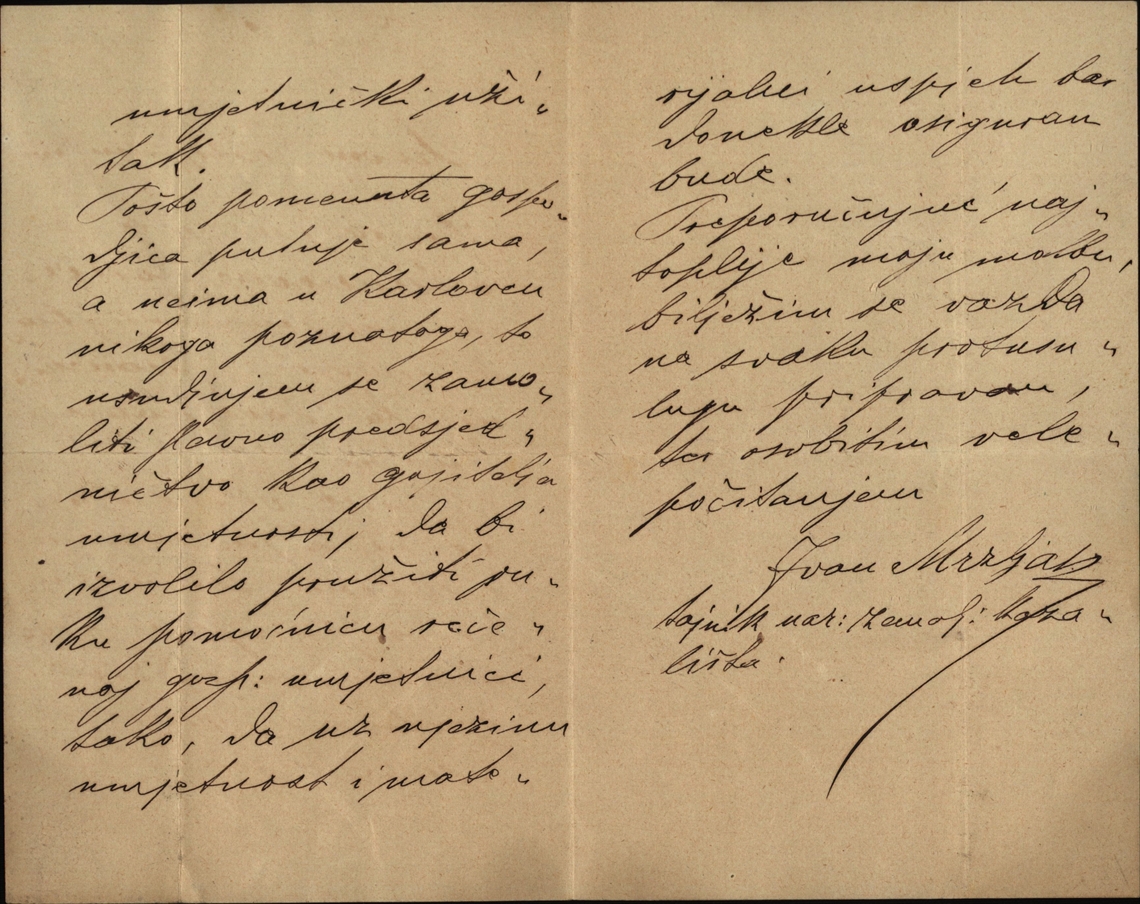 umjetnički uži„
tak.
Pošto pomenuta gospo„
djica putuje sama,
a neima u Karlovcu
nikoga poznatoga, to
usudjujem se zamo„
liti slavno predsjed„
ničtvo kao gojitelja
umjetnosti, da bi
izvolilo pružiti ru„
ku pomoćnicu reče„
noj gosp: umjetnici,
tako, da uz njezinu
umjetnost i mate„
rijalni uspjeh bar
donekle osiguran
bude.
Preporučujuć naj„
toplije moju molbu,
bilježim se vazda
na svaku protuslu„
lugu pripravan,
te osobitim vele„
počitanjem
Ivan Mrzljak
tajnik nar: zemalj: kaza„
lišta.